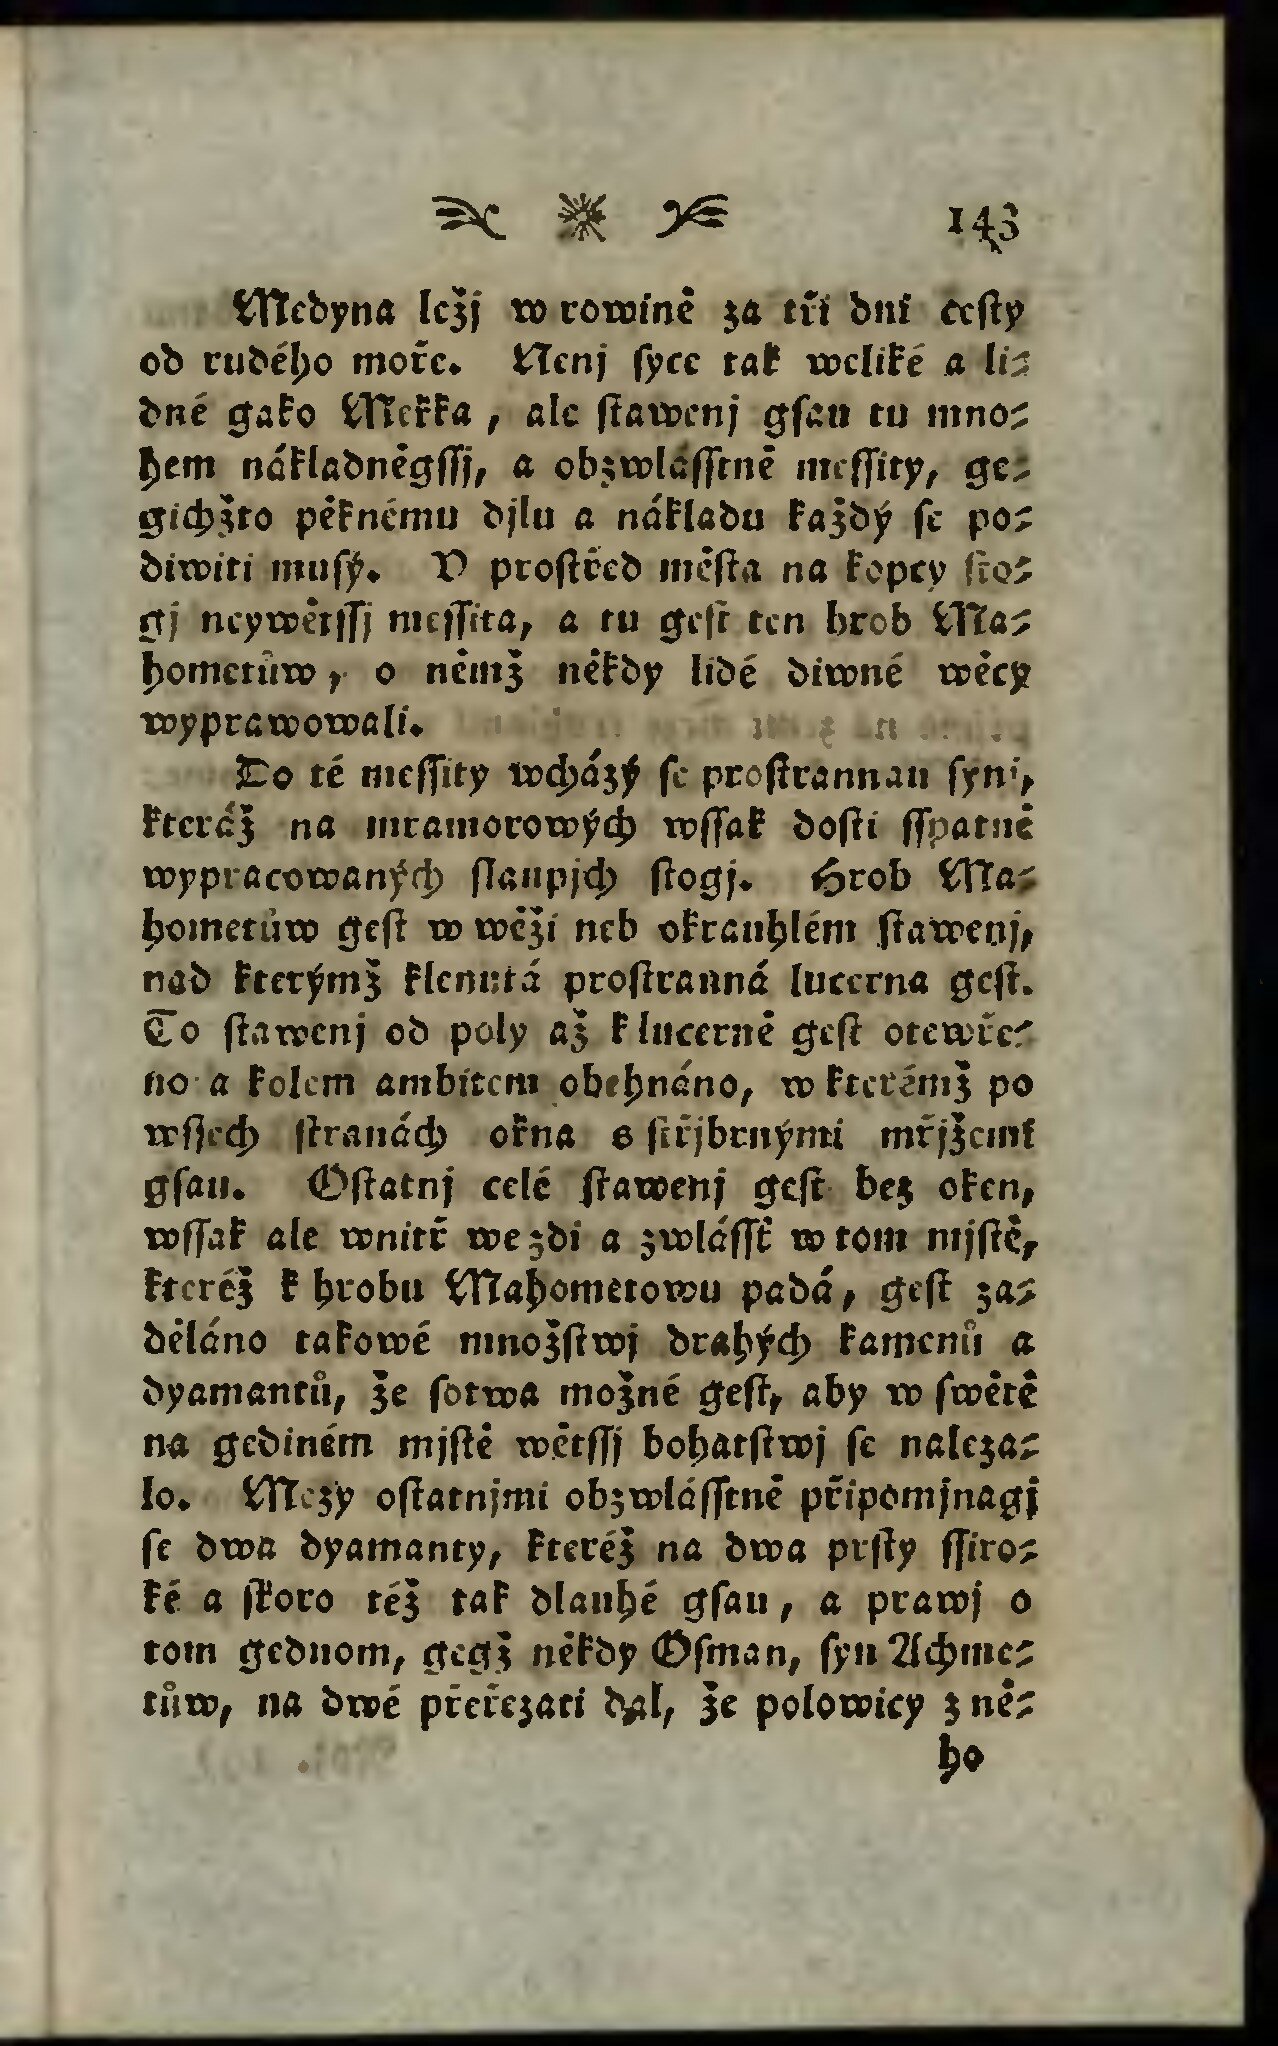 143
Medyna ležj w rowině za tři dni cesty
od rudého moře. Nenj syce tak weliké a li⸗
dné gako Mekka, ale ſtawenj gſau tu mno⸗
hem nákladněgſſj, a obzwláſſtně meſſity, ge⸗
gichžto pěknému djlu a nákladu každý ſe po⸗
diwiti muſý. V proſtřed měſta na kopcy ſto⸗
gj neywětſſj meſſita, a tu geſt ten hrob Ma⸗
hometůw, o němž někdy lidé diwné wěcy
wyprawowali.
Do té meſſity wcházý ſe proſtrannau ſýnj,
kteráž na mramorowých wſſak doſti ſſpatně
wypracowaných ſlaupjch ſtogj. Hrob Ma⸗
hometůw geſt w wěži neb okrauhlém ſtawenj,
nad kterýmž klenutá proſtranná lucerna geſt.
To ſtawenj od poly až k lucerně geſt otewře⸗
no a kolem ambitem obehnáno, w kterémž po
wſſech ſtranách okna s ſtřjbrnými mřjžemi
gſau. Oſtatnj celé ſtawenj geſt bez oken,
wſſak ale wnitř we zdi a zwláſſť w tom mjſtě,
kteréž k hrobu Mahometowu padá, geſt za⸗
děláno takowé množſtwj drahých kamenů a
dyamantů, že ſotwa možné geſt, aby w ſwětě
na gediném mjſtě wětſſj bohatſtwj ſe naleza⸗
lo. Mezy oſtatnjmi obzwláſſtně připomjnagj
ſe dwa dyamanty, kteréž na dwa prſty ſſiro⸗
ké a ſkoro též tak dlauhé gſau, a prawj o
tom gednom, gegž někdy Oſman, ſyn Achme⸗
tůw, na dwé přeřezati dal, že polowicy z ně⸗
ho